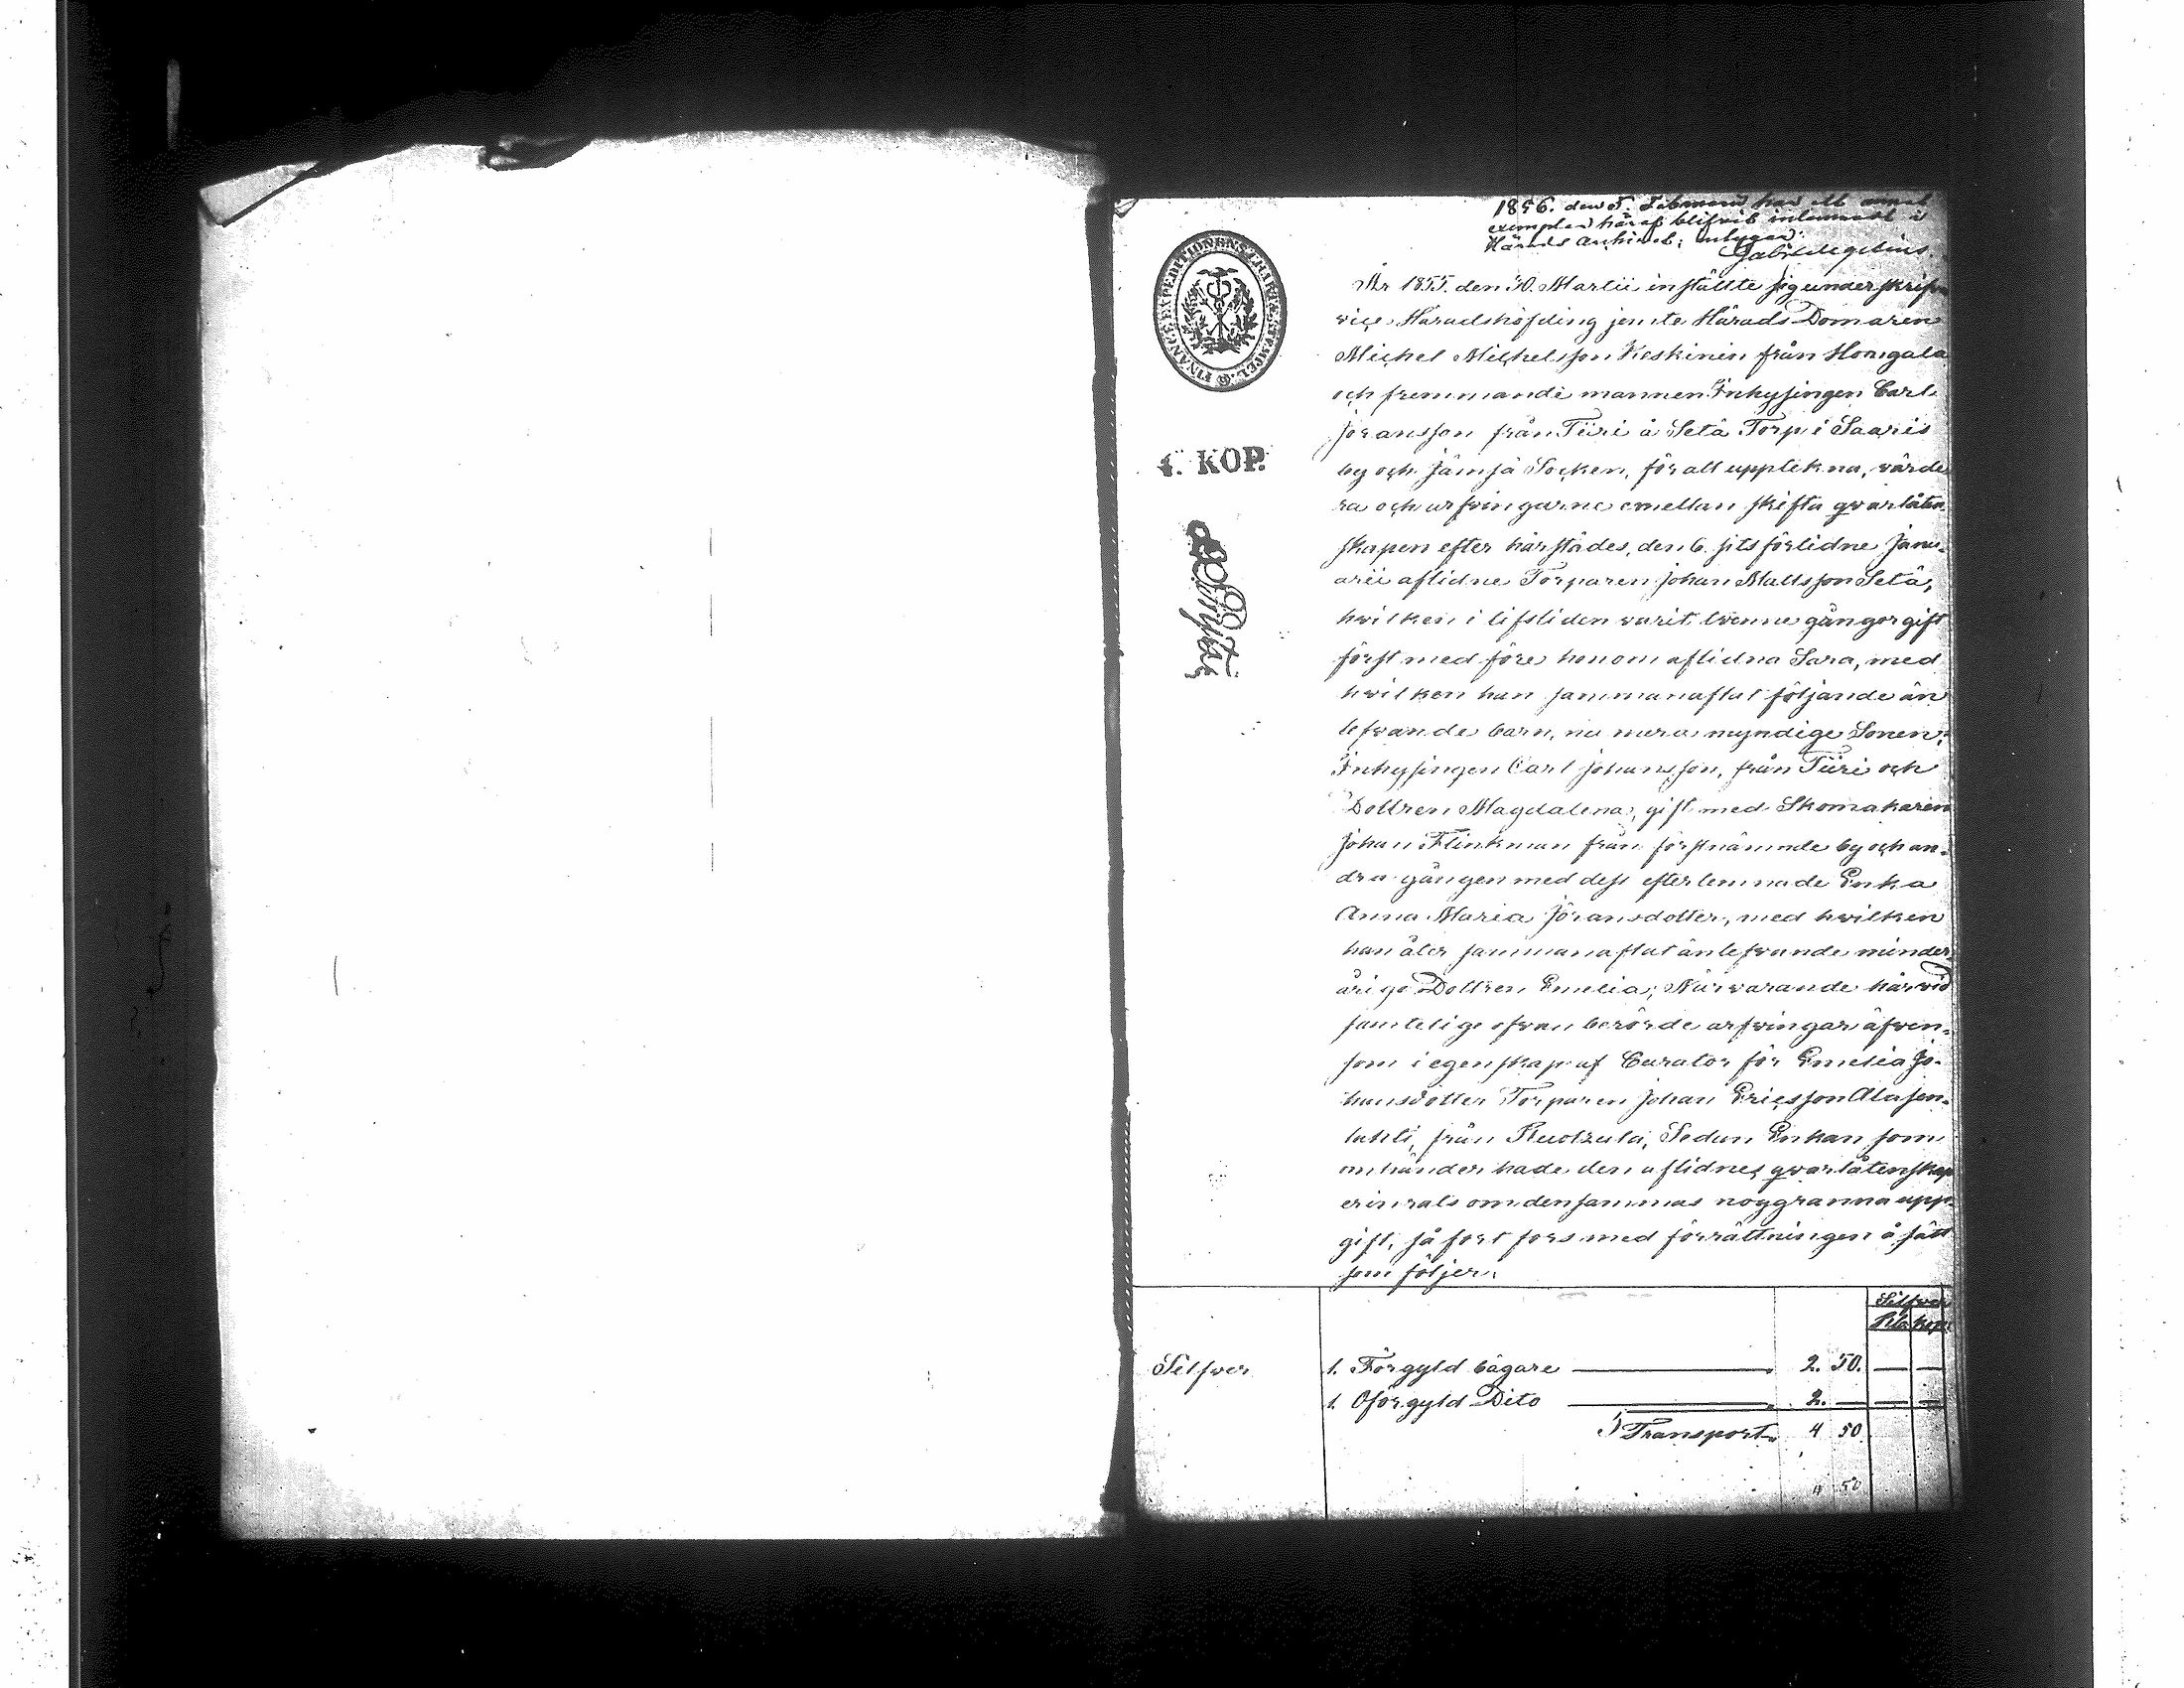 1856. den 5. Februarii har ett annat
exemplar häraf blifvit inlemnadt i
Härads Archivet; intygar:
FINANCE EXPEDITIONENS CHARTÆ STÆMPEL.
År 1855. den 30. Martii inställte sig underskrifne
vice Häradshöfding jemte Härads Domaren
Michel Michelsson Keskinen från Hongala
och fremmande mannen Inhysingen Carl
Joransson från Tiiri å Setä Torp i Saaris
by och Jämsä Socken, för att uppteckna, värde
ra och arfvingarne emellan skifta qvarlåten
skapen efter härstädes, den 6. sistförlidne Janu-
arii aflidne Torparen Johan Mattsson Setä,
hvilken i lifstiden varit tvenne gångor gift
först med före honom aflidna Sara, med
hvilken han sammanaflat följande än
lefvande barn, nu mera myndige Sonen,
Inhysingen Carl Johansson, från Tiiri och
Dottren Magdalena, gift med Skomakaren
Johan Flinkman från förstnämnde by och an-
dra gången med dess efterlemnade Enka
Anna Maria Jöransdotter, med hvilken
han åter sammanaflat änlefvande minder
åriga Dottren Emelia; Närvarande härvid
samtelige ofvan berörde arfvingar äfven-
som i egenskap af Curator för Emelia Jo-
hansdotter Torparen Johan Ericsson
från Sedan Enkan som
omhänder hade den aflidnes qvarlåtenskap
erinrats om densammas noggranna upp-
gift, så fortfors med förrättningen å sätt
som följer:
4. KOP.
Silfver
Rbl Kop.
Silfver
1. Förgyld bägare 2. 50. — —
1. Oförgyld Dito 2. — — —
Transport 4 50
4 50